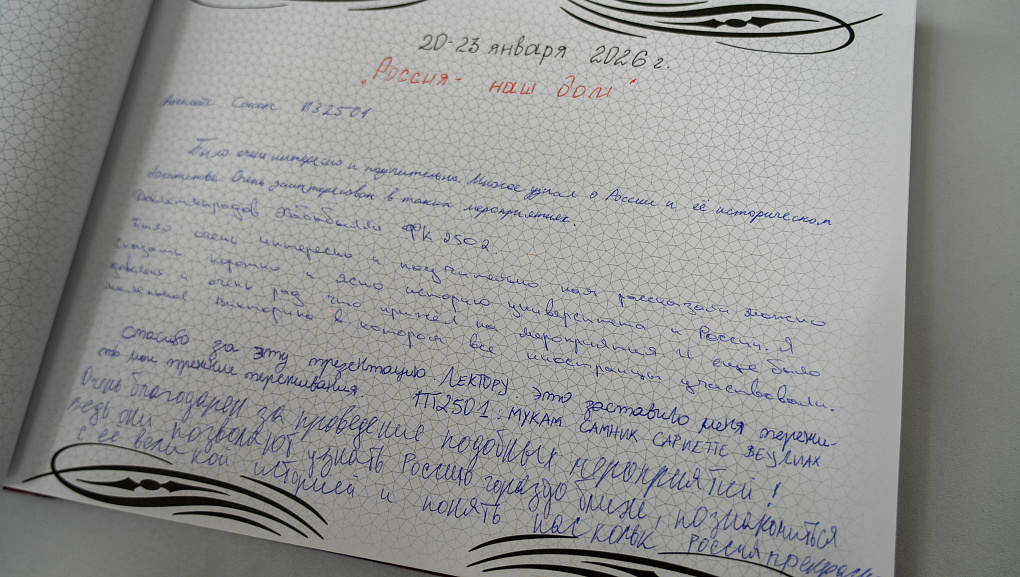 20-23 января 2026 г.
"Россия - наш дом"
ПЗ2501
Было очень интересно и поучительно. Многое узнал о России и её историческом
богатстве. Очень заинтересован в таких мероприятиях.
ФК 2502.
Было очень интересно и поучительно нам рассказали можно
сказать коротко и ясно историю университета и России. Я
и очень рад что пришёл на мероприятия и еще было
маленькое викторина в котором все иностранцы участвовали.
спасибо за эту презентацию ЛЕКТОРУ. это заставило меня
мои прежние переживания. ПТ2501. МУКАМ САМНИК
Очень благодарен за проведение подобных мероприятий!
ведь они позволяют узнать Россию гораздо ближе, познакомиться
с её великой историей и понять насколько Россия